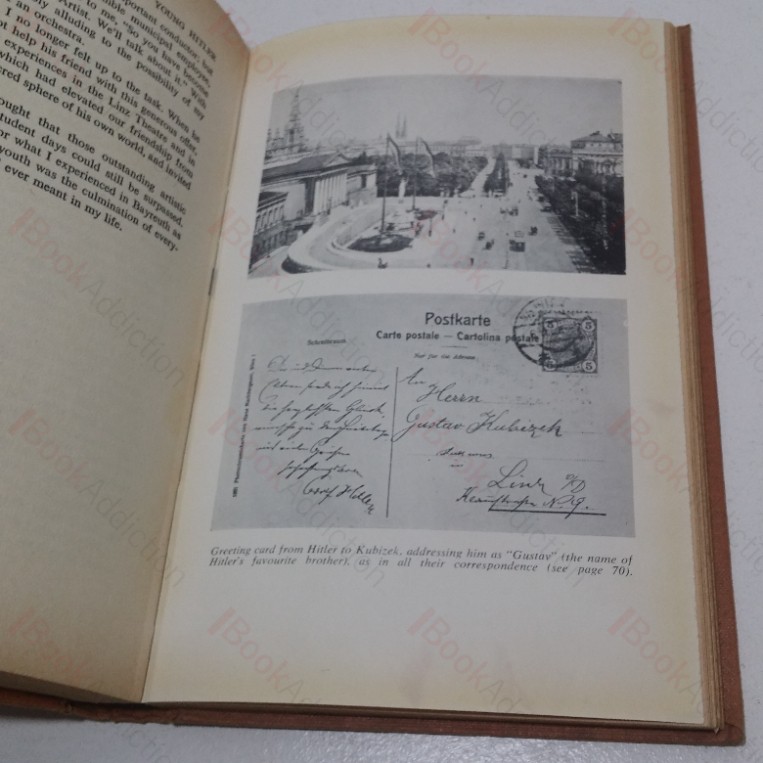 YOUNG HITLER
portant conductor, but
ble municipal employee
to me, "So you have become
Artist. We'll talk about it." With
ly alluding to the possibility of my
an orchestra.
I no longer felt up to the task. When he
t help his friend with this generous offer,
experiences in the Linz Theatre and in
which had elevated our friendship from
red sphere of his own world, and invited
ought that those outstanding artistic
tudent days could still be surpassed,
or what I experienced in Bayreuth as
youth was the culmination of every-
ever meant in my life.
Postkarte
Carte postale — Cartolina postale
Nur für die Adresse
Schreibraum
5 5
5 5
An
Herrn
Gustav Kubizek
in
Linz a/D
N. 9.
Adolf Hitler
Greeting card from Hitler to Kubizek, addressing him as "Gustav" (the name of
Hitler's favourite brother), as in all their correspondence (see page 70).
BookAddiction